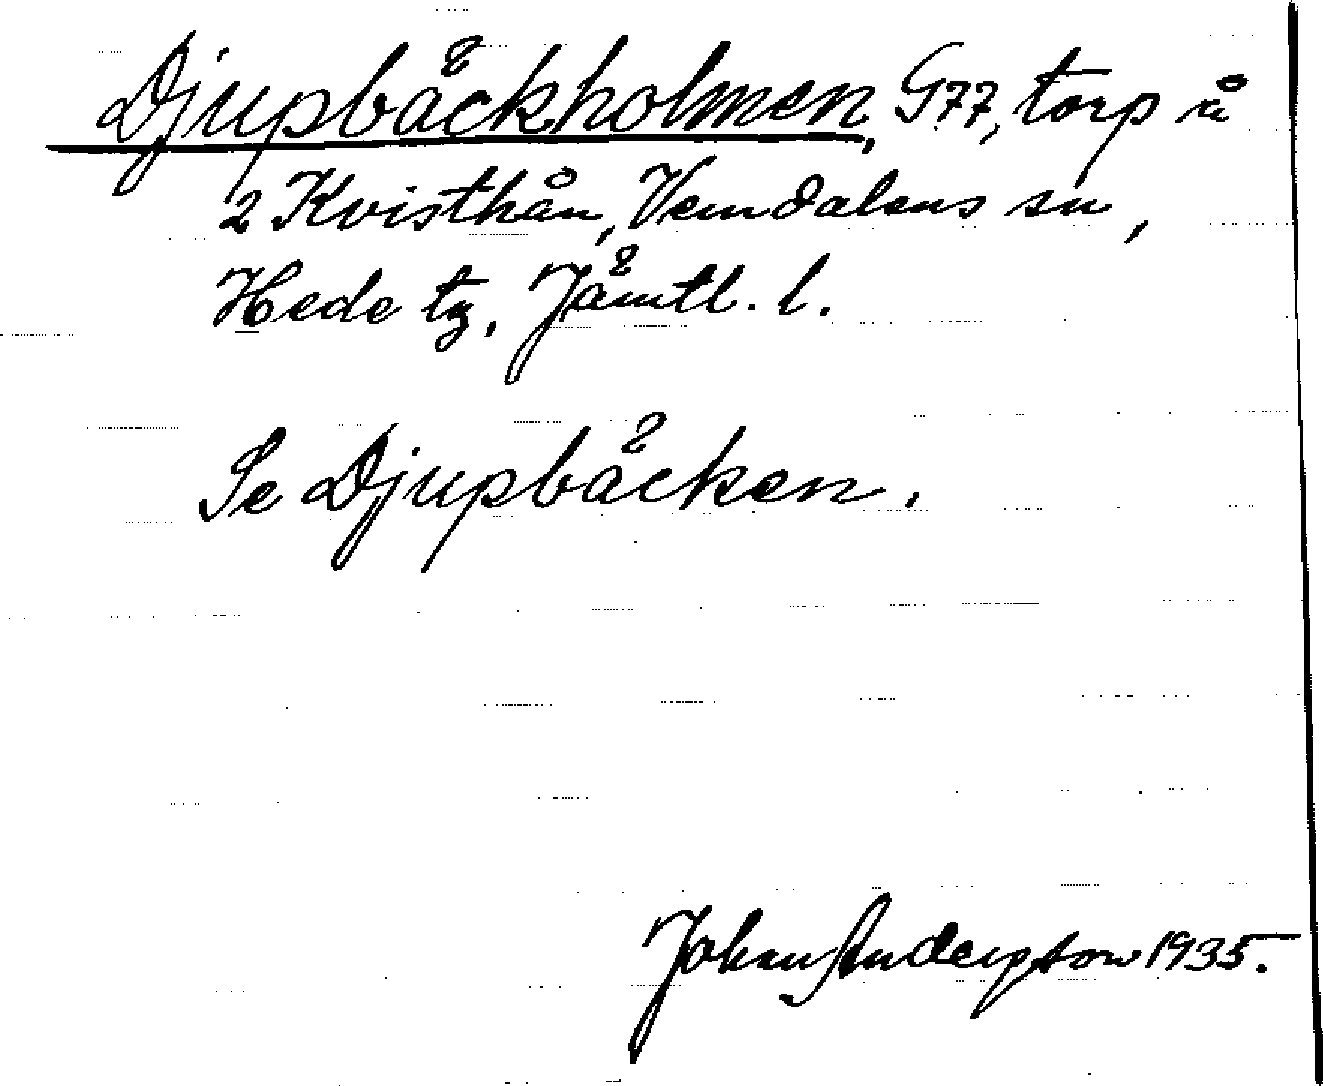 Djupbäckholmen, G77, torp å
2 Kvisthån, Vemdalens sn,
Hede tg, Jämtl. l.
Se Djupbäcken.
Johan Anderson 1935.